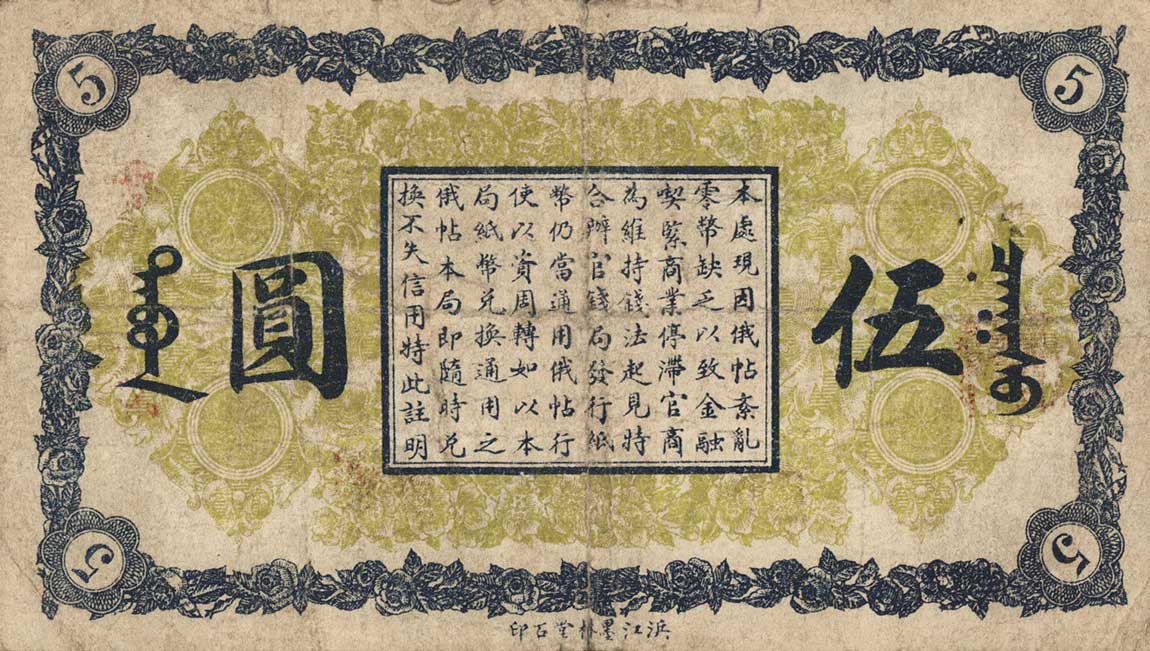 5
5
伍
圓
本處現因俄帖紊亂
零幣缺乏以致金融
喫緊商業停滯官商
為維持錢法起見特
合辦官錢局發行紙
幣仍當通用俄帖行
使以資周轉如以本
局紙幣兌換通用之
俄帖本局即隨時兌
換不失信用特此註明
5
5
浜江墨林堂石印